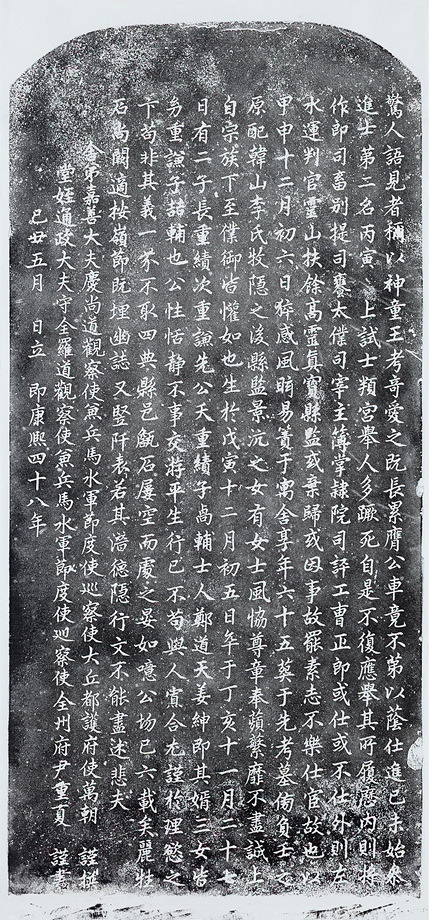 驚人語見者稱以神童王考奇愛之旣長累膺公車竟不第以蔭仕進己未始參
進士第二名丙寅 上試士頖宮擧人多蹶死自是不復應擧其所履歷內則將
作郎司畜別提司饔太僕司宰主簿掌隷院司評工曹正郎或仕或不仕外則左
水運判官靈山扶餘高靈眞寶縣監或棄歸或因事故罷素志不樂仕宦故也以
甲申十二月初六日猝感風暍易簀于寓舍享年六十五葬于先考墓傍負壬之
原配韓山李氏牧隱之後縣監景沆之女有女士風恊尊章奉蘋蘩靡不盡誠上
自宗族下至僕御皆懽如也生於戊寅十二月初五日卒于丁亥十一月二十七
日有二子長重績次重謙先公夭重績子卨輔士人鄭道天姜紳即其婿三女皆
務重謙子喆輔也公性恬靜不事交游平生行己不苟與人寡合尤謹於理慾之
卞苟非其義一芥不取四典縣邑甔石屢空而處之晏如噫公歿已六載矣麗牲
石尙闕適按嶺節旣埋幽誌又竪阡表若其潛德隱行文不能盡述悲夫
舍弟嘉善大夫慶尙道觀察使兼兵馬水軍節度使巡察使大丘都護府使萬朝 謹撰
堂姪通政大夫守全羅道觀察使兼兵馬水軍節度使巡察使全州府尹重夏 謹書
己丑五月 日立 即康熙四十八年